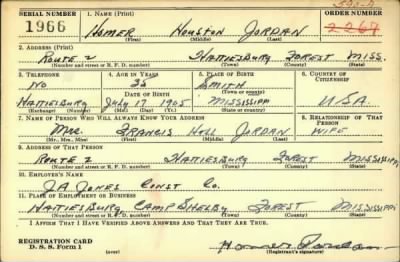 SERIAL NUMBER 1. NAME (Print) ORDER NUMBER
1966 HOMER HOUSTON JORDAN 2267
(First) (Middle) (Last)
2. ADDRESS (Print)
ROUTE 2 HATTIESBURG FOREST MISS.
(Number and street or R. F. D. number) (Town) (County) (State)
3. TELEPHONE 4. AGE IN YEARS 5. PLACE OF BIRTH 6. COUNTRY OF CITIZENSHIP
NO 35 SMITH
DATE OF BIRTH (Town or county)
HATTIESBURG JULY 17 1905 MISSISSIPPI U.S.A.
(Exchange) (Number) (Mo.) (Day) (Yr.) (State or country)
7. NAME OF PERSON WHO WILL ALWAYS KNOW YOUR ADDRESS 8. RELATIONSHIP OF THAT PERSON
MRS. FRANCIS HOLL JORDAN WIFE
(Mr., Mrs., Miss) (First) (Middle) (Last)
9. ADDRESS OF THAT PERSON
ROUTE 2 HATTIESBURG FOREST MISSISSIPPI
(Number and street or R. F. D. number) (Town) (County) (State)
10. EMPLOYER'S NAME
J.A. JONES CONST CO.
11. PLACE OF EMPLOYMENT OR BUSINESS
HATTIESBURG CAMP SHELBY FOREST MISSISSIPPI
(Number and street or R. F. D. number) (Town) (County) (State)
I AFFIRM THAT I HAVE VERIFIED ABOVE ANSWERS AND THAT THEY ARE TRUE.
REGISTRATION CARD
D. S. S. Form 1 (over) Homer Jordan
(Registrant's signature)